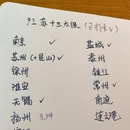 江苏十三太保（已打卡✓）
南京 ✓
盐城 ✓
苏州（+昆山）✓
泰州
徐州
镇江
淮安
常州 ✓
无锡 ✓
南通
扬州
连云港